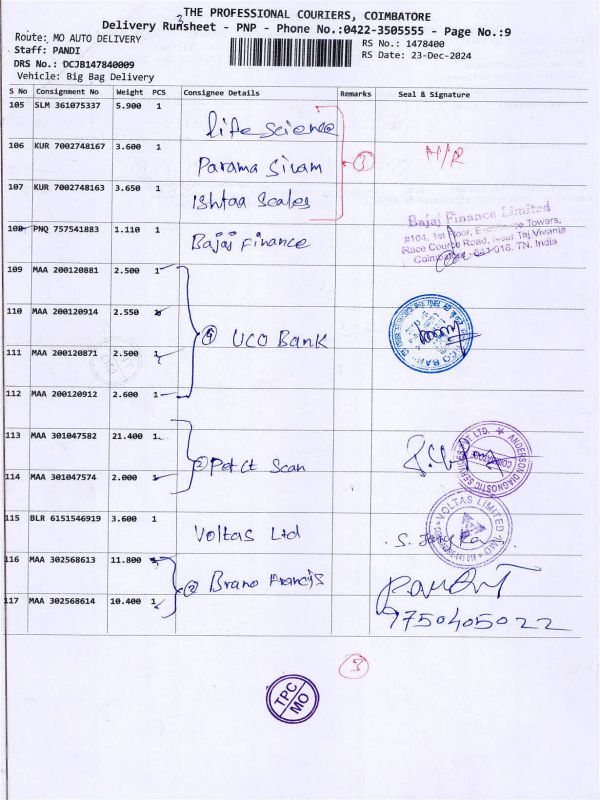 THE PROFESSIONAL COURIERS, COIMBATORE
Delivery Runsheet - PNP - Phone No.:0422-3505555 - Page No.:9
Route: MO AUTO DELIVERY
RS No.: 1478400
Staff: PANDI
RS Date: 23-Dec-2024
DRS No.: DCJB147840009
Vehicle: Big Bag Delivery
S No Consignment No Weight PCS Consignee Details Remarks Seal & Signature
105 SLM 361075337 5.900 1 Life Science
106 KUR 7002748167 3.600 1 Parama Sivam
(3)
107 KUR 7002748163 3.650 1 Ishtaa Scales
108 PNQ 757541883 1.110 1 Bajaj Finance
Bajaj Finance Limited
#104, 1st Floor, Towers,
Race Course Road, Near Taj Vivanta
Coimbatore-641 018. TN. India
109 MAA 200120881 2.500 1
110 MAA 200120914 2.550
(4) UCO Bank
111 MAA 200120871 2.500 1
112 MAA 200120912 2.600 1
113 MAA 301047582 21.400 1
(2) Pet Ct Scan
ANDERSON DIAGNOSTIC SERVICES PVT LTD.
114 MAA 301047574 2.000 1
115 BLR 6151546919 3.600 1 Voltas Ltd
VOLTAS LIMITED
116 MAA 302568613 11.800
(2) Brano Francis
117 MAA 302568614 10.400 1
9750405022
(3)
TPC
MO